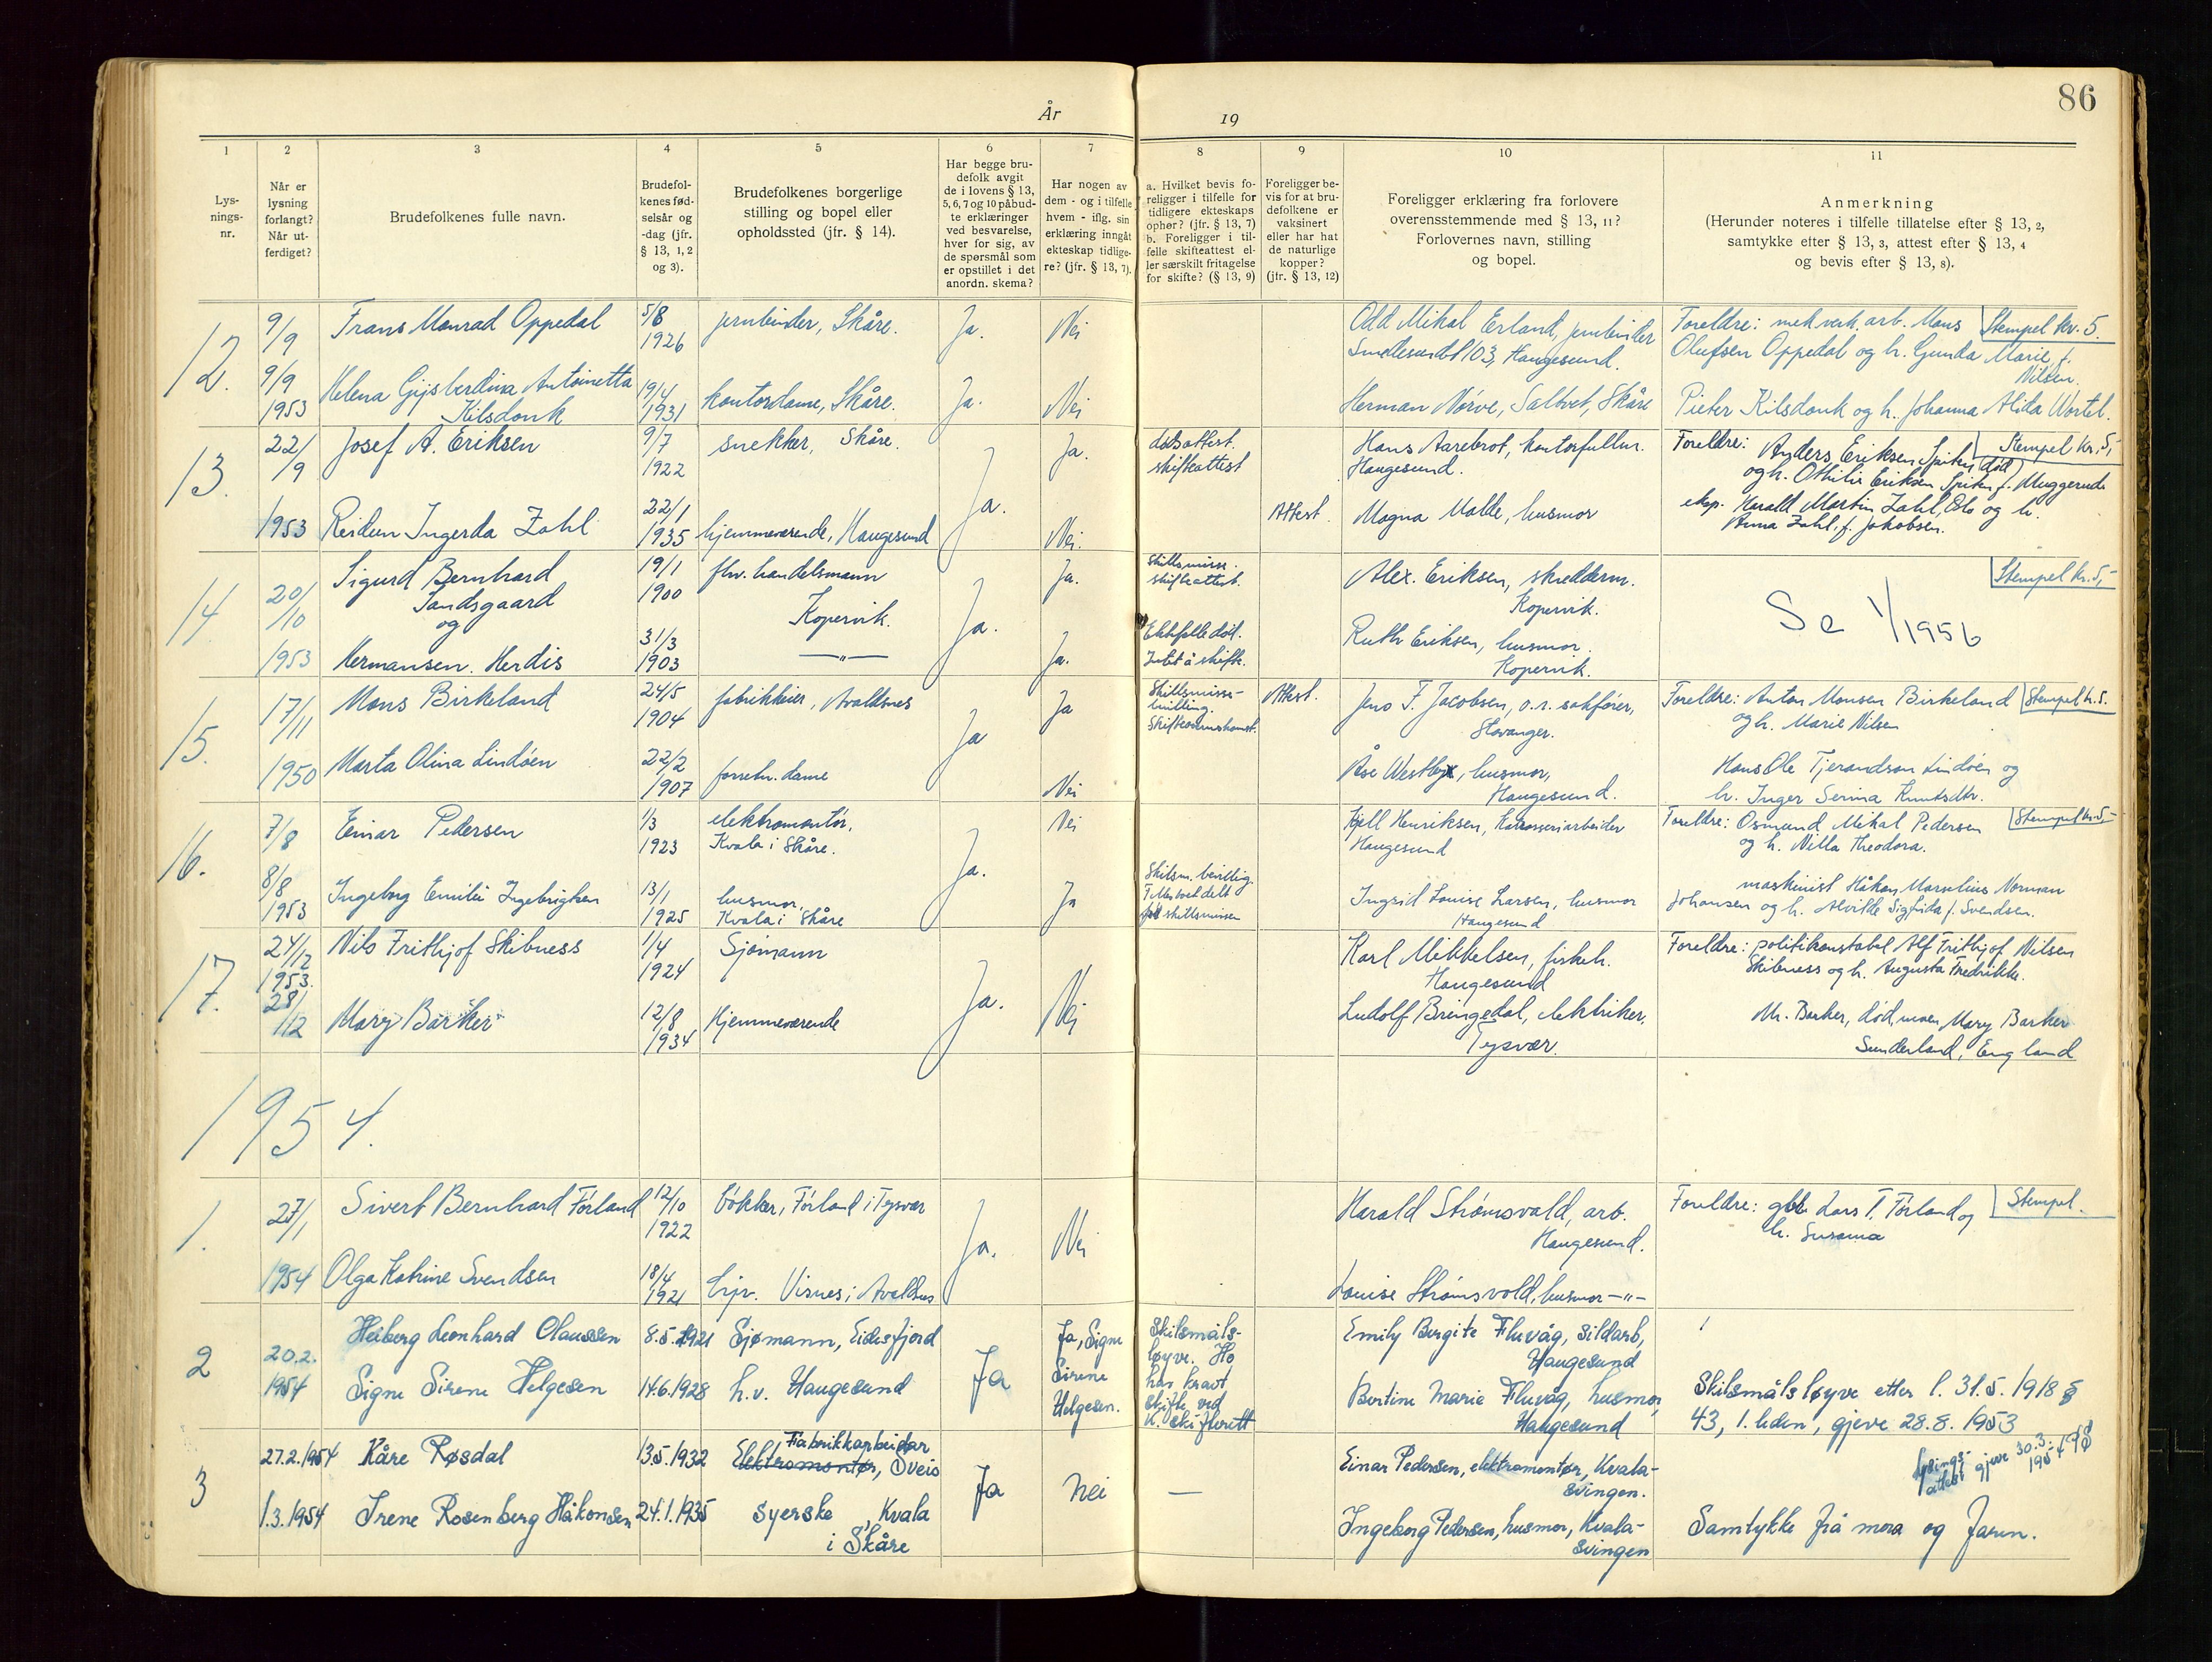 86
År
19
1
Lys-
nings-
nr.
2
Når er
lysning
forlangt?
Når ut-
ferdiget?
3
Brudefolkenes fulle navn.
4
Brudefol-
kenes fød-
selsår og
-dag (jfr.
§ 13, 1, 2
og 3).
5
Brudefolkenes borgerlige
stilling og bopel eller
opholdssted (jfr. § 14).
6
Har begge bru-
defolk avgit
de i lovens § 13,
5, 6, 7 og 10 påbud-
te erklæringer
ved besvarelse,
hver for sig, av
de spørsmål som
er opstillet i det
anordn. skema?
7
Har nogen av
dem - og i tilfelle
hvem - iflg. sin
erklæring inngåt
ekteskap tidlige-
re? (jfr. § 13, 7).
8
a. Hvilket bevis fo-
religger i tilfelle for
tidligere ekteskaps
ophør? (jfr. § 13, 7)
b. Foreligger i til-
felle skifteattest el-
ler særskilt fritagelse
for skifte? (§ 13, 9)
9
Foreligger be-
vis for at bru-
defolkene er
vaksinert
eller har hat
de naturlige
kopper?
(jfr. § 13, 12)
10
Foreligger erklæring fra forlovere
overensstemmende med § 13, 11?
Forlovernes navn, stilling
og bopel.
11
Anmerkning
(Herunder noteres i tilfelle tillatelse efter § 13, 2,
samtykke efter § 13, 3, attest efter § 13, 4
og bevis efter § 13, 8).
12.
9/9
9/9
1953
Frans Monrad Oppedal
5/8
1926
jernbinder, Skåre.
Ja.
Nei
Odd Mikal Erland, jernbinder
Smedesundet 103, Haugesund.
Foreldre: mek verk. arb. Mons
Stempel kr. 5
Olufsen Oppedal og h. Gunda Marie f.
Nilsen.
Helena Gijsberdina Antoinetta
Kilsdonk
19/4
1931
kontordame, Skåre.
Ja.
Nei
Herman Nørve, Saltvet, Skåre
Pieter Kilsdonk og h. Johanna Alida Wortel.
13.
22/9
1953
Josef A. Eriksen
9/7
1922
snekker, Skåre.
Ja.
Ja.
dødsattest.
skifteattest
Hans Aarebrot, kontorfullm.
Haugesund.
Foreldre: Anders Eriksen Spiten (død)
Stempel kr. 5,-
og h. Othilie Eriksen Spiten f. Muggerud
Reidun Ingerda Zahl
22/1
1935
hjemmeværende, Haugesund
Nei.
Attest.
Magna Valde, husmor
eksp. Harald Martin Zahl, Oslo og h.
Anna Zahl, f. Jakobsen.
14.
20/10
1953
Sigurd Bernhard
Sandsgaard
og
19/1
1900
fhv. handelsmann
Kopervik.
Ja.
Ja.
Skillsmisse.
skifteattest.
Alex. Eriksen, skredderm.
Kopervik.
Stempel kr. 5,-
Se 1/1956
Hermansen. Herdis
31/3
1903
—"—
Ja.
Ektefelle død.
Intet å skifte.
Ruth Eriksen, husmor.
Kopervik.
15.
17/11
1950
Mons Birkeland
24/5
1904
fabrikkeier, Avaldsnes
Ja
Ja
Skillsmisse-
Attest.
Jens F. Jacobsen, o.r. sakfører,
Stavanger.
Foreldre: Anton Monsen Birkeland
Stempel kr. 5.
og h. Marie Nilsen
Marta Olina Lindøen
22/2
1907
forretn. dame
Nei
Åse Westby, husmor,
Haugesund.
Hans Ole Tjerandsen Lindøen og
h. Inger Serina Knutsdtr.
16.
7/8
8/8
1953
Einar Pedersen
1/3
1923
elektromontør,
Kvala i Skåre.
Ja.
Nei
Kjell Henriksen, Karosseriarbeider
Haugesund
Foreldre: Osmund Mikal Pedersen
Stempel kr. 5,-
og h. Nilla Theodora.
Ingeborg Emilie Ingebrigtsen
13/1
1925
husmor,
Kvala i Skåre
Ja
Skilsm. bevillig.
skillsmissen
Ingrid Louise Larsen, husmor
Haugesund
maskinist Håkon Marselius Norman
Johansen og h. Alvilde Sigfrida f. Svendsen.
17.
24/12
1953.
28/12
Nils Frithjof Skibness
1/4
1924
Sjømann
Ja.
Nei
Karl Mikkelsen, fiskeh.
Haugesund
Foreldre: politikonstabel Alf Frithjof Nilsen
Skibness og h. Augusta Fredrikke.
Mary Barker
12/8
1934
Hjemmeværende
Ludolf Bringedal, elektriker,
Tysvær.
Mr. Barker, død, moren, Mary Barker
Sunderland, England
1954.
1.
27/1
1954
Sivert Bernhard Førland
12/10
1922
bøkker, Førland i Tysvær
Ja.
Nei
Harald Strømsvold, arb.
Haugesund.
Foreldre: gbr. Lars T. Førland og
Stempel.
h. Susanna
Olga Katrine Svendsen
18/4
1921
hjv. Visnes i Avaldsnes
Louise Strømsvold, husmor —"—
2
20.2.
1954
Heiberg Leonhard Claussen
8.5.1921
Sjømann, Eidesfjord
Ja
Ja, Signe
Sirene
Helgesen.
Skilsmåls-
løyve. Ho
har kravt
skifte ved
h. skifterett
Emily Bergite Fluvåg, sildarb,
Haugesund
Signe Sirene Helgesen
14.6.1928
h.v. Haugesund
Bertine Marie Fluvåg, husmor,
Haugesund
Skilsmålsløyve etter l. 31.5.1918 §
43, 1. leden, gjeve 28.8.1953
3
27.2.1954
Kåre Røsdal
13.5.1932
Fabrikkarbeidar
Elektromontør, Sveio
Ja
Nei
—
Einar Pedersen, elektromontør, Kvala-
svingen.
Lysings-
attest gjeve 30.3.
1954
1.3.1954
Irene Rosenberg Håkonsen
24.1.1935
Syerske, Kvala
i Skåre
Ingeborg Pedersen, husmor, Kvala-
svingen
Samtykke frå mora og faren.